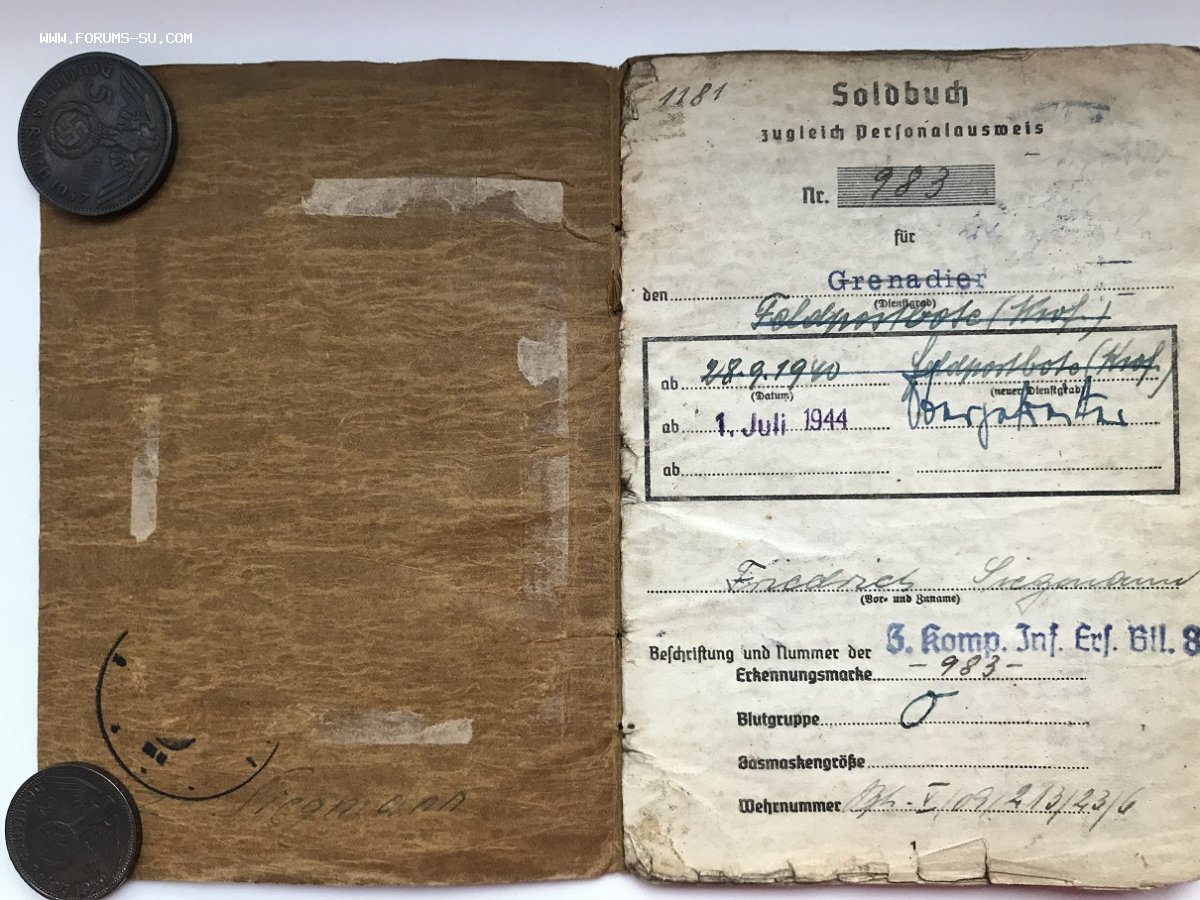 WWW.FORUMS-SU.COM
5
Deutsches Reich
1181
Soldbuch
zugleich Personalausweis
Nr. 983
für
den Grenadier
(Dienstgrad)
Feldpostbote (Krof.)
ab 28.9.1940 Feldpostbote (Krof.)
(Datum) (neuer Dienstgrad)
ab 1. Juli 1944 Obergefreiter
ab
Friedrich Siegmann
(Vor- und Zuname)
Beschriftung und Nummer der 3. Komp. Inf. Ers. Btl. 8
Erkennungsmarke -983-
Blutgruppe O
Gasmaskengröße
Wehrnummer
1
Siegmann